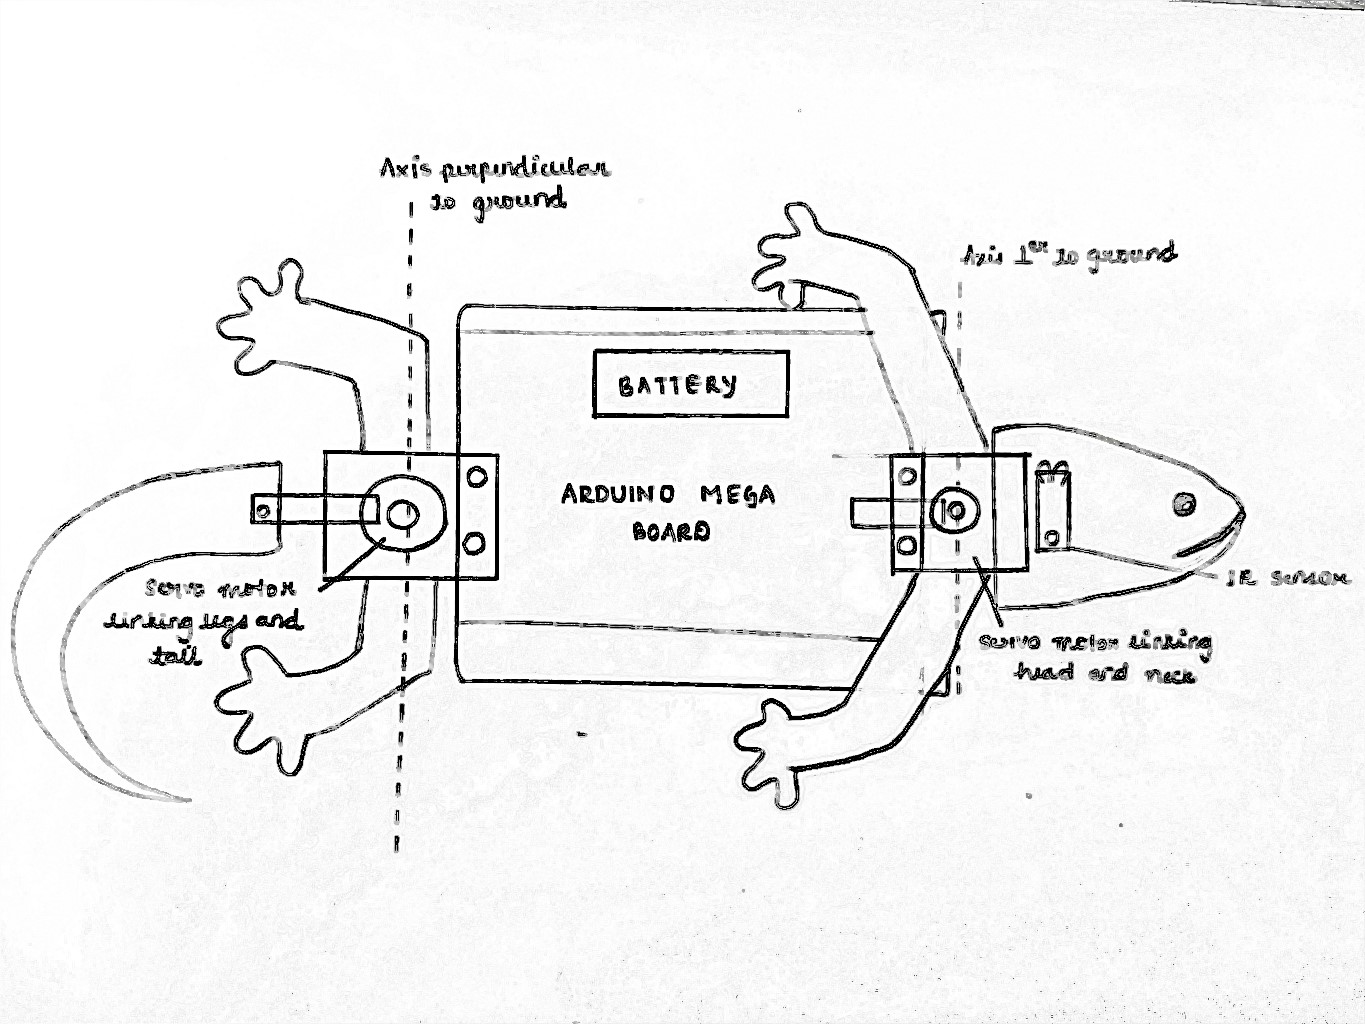 Axis perpendicular
to ground
Axis 1er to ground
BATTERY
ARDUINO MEGA
BOARD
IR sensor
Servo motor
linking legs and
tail
Servo motor linking
head and neck